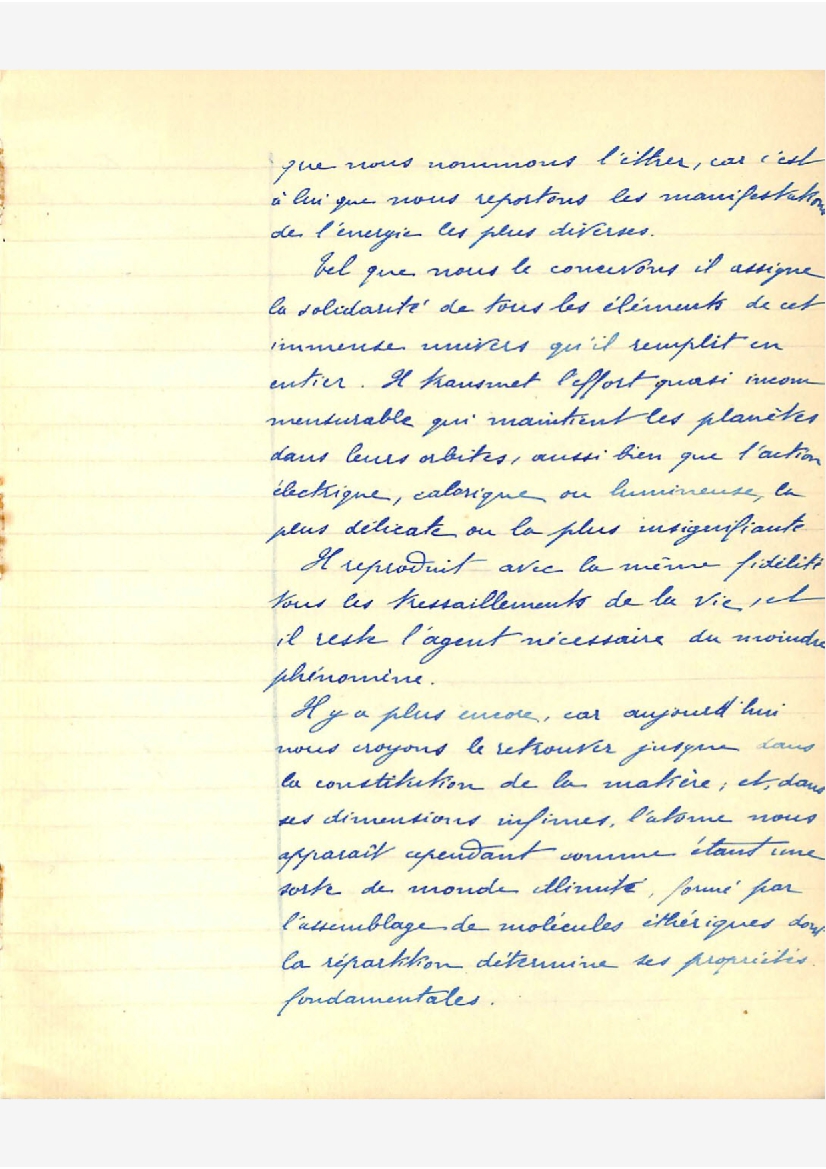 que nous nommons l'éther, car c'est
à lui que nous reportons les manifestations
de l'énergie les plus diverses.
Tel que nous le concevons il assigne
la solidarité de tous les éléments de cet
immense univers qu'il remplit en
entier. Il transmet l'effort quasi incom
mensurable qui maintient les planètes
dans leurs orbites, aussi bien que l'action
électrique, calorique ou lumineuse, la
plus délicate ou la plus insignifiante
Il reproduit avec la même fidélité
tous les tressaillements de la vie, et
il reste l'agent nécessaire du moindre
phénomène.
Il y a plus encore, car aujourd'hui
nous croyons le retrouver jusque dans
la constitution de la matière; et, dans
ses dimensions infimes, l'atome nous
apparaît cependant comme étant une
sorte de monde illimité, formé par
l'assemblage de molécules éthériques dont
la répartition détermine ses propriétés
fondamentales.